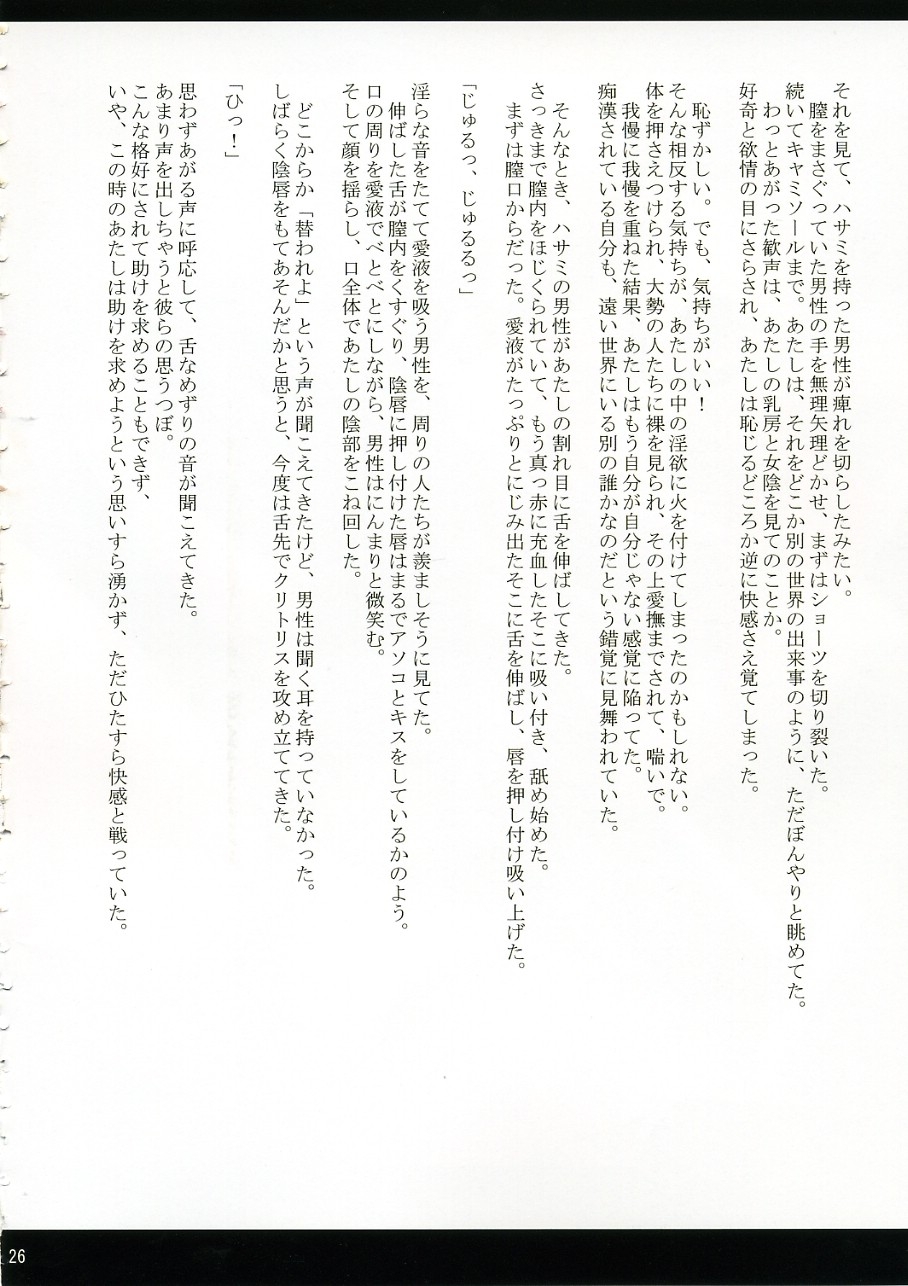 それを見て、ハサミを持った男性が痺れを切らしたみたい。
膣をまさぐっていた男性の手を無理矢理どかせ、まずはショーツを切り裂いた。
続いてキャミソールまで。あたしは、それをどこか別の世界の出来事のように、ただぼんやりと眺めてた。
わっとあがった歓声は、あたしの乳房と女陰を見てのことか。
好奇と欲情の目にさらされ、あたしは恥じるどころか逆に快感さえ覚えてしまった。
恥ずかしい。でも、気持ちがいい！
そんな相反する気持ちが、あたしの中の淫欲に火を付けてしまったのかもしれない。
体を押さえつけられ、大勢の人たちに裸を見られ、その上愛撫までされて、喘いで。
我慢に我慢を重ねた結果、あたしはもう自分が自分じゃない感覚に陥ってた。
痴漢されている自分も、遠い世界にいる別の誰かなのだという錯覚に見舞われていた。
そんなとき、ハサミの男性があたしの割れ目に舌を伸ばしてきた。
さっきまで膣内をほじくられていて、もう真っ赤に充血したそこに吸い付き、舐め始めた。
まずは膣口からだった。愛液がたっぷりとにじみ出たそこに舌を伸ばし、唇を押し付け吸い上げた。
「じゅるっ、じゅるるっ」
淫らな音をたてて愛液を吸う男性を、周りの人たちが羨ましそうに見てた。
伸ばした舌が膣内をくすぐり、陰唇に押し付けた唇はまるでアソコとキスをしているかのよう。
口の周りを愛液でべとべとにしながら、男性はにんまりと微笑む。
そして顔を揺らし、口全体であたしの陰部をこね回した。
どこからか「替われよ」という声が聞こえてきたけど、男性は聞く耳を持っていなかった。
しばらく陰唇をもてあそんだかと思うと、今度は舌先でクリトリスを攻め立ててきた。
「ひっ！」
思わずあがる声に呼応して、舌なめずりの音が聞こえてきた。
あまり声を出しちゃうと彼らの思うつぼ。
こんな格好にされて助けを求めることもできず、
いや、この時のあたしは助けを求めようという思いすら湧かず、ただひたすら快感と戦っていた。
26